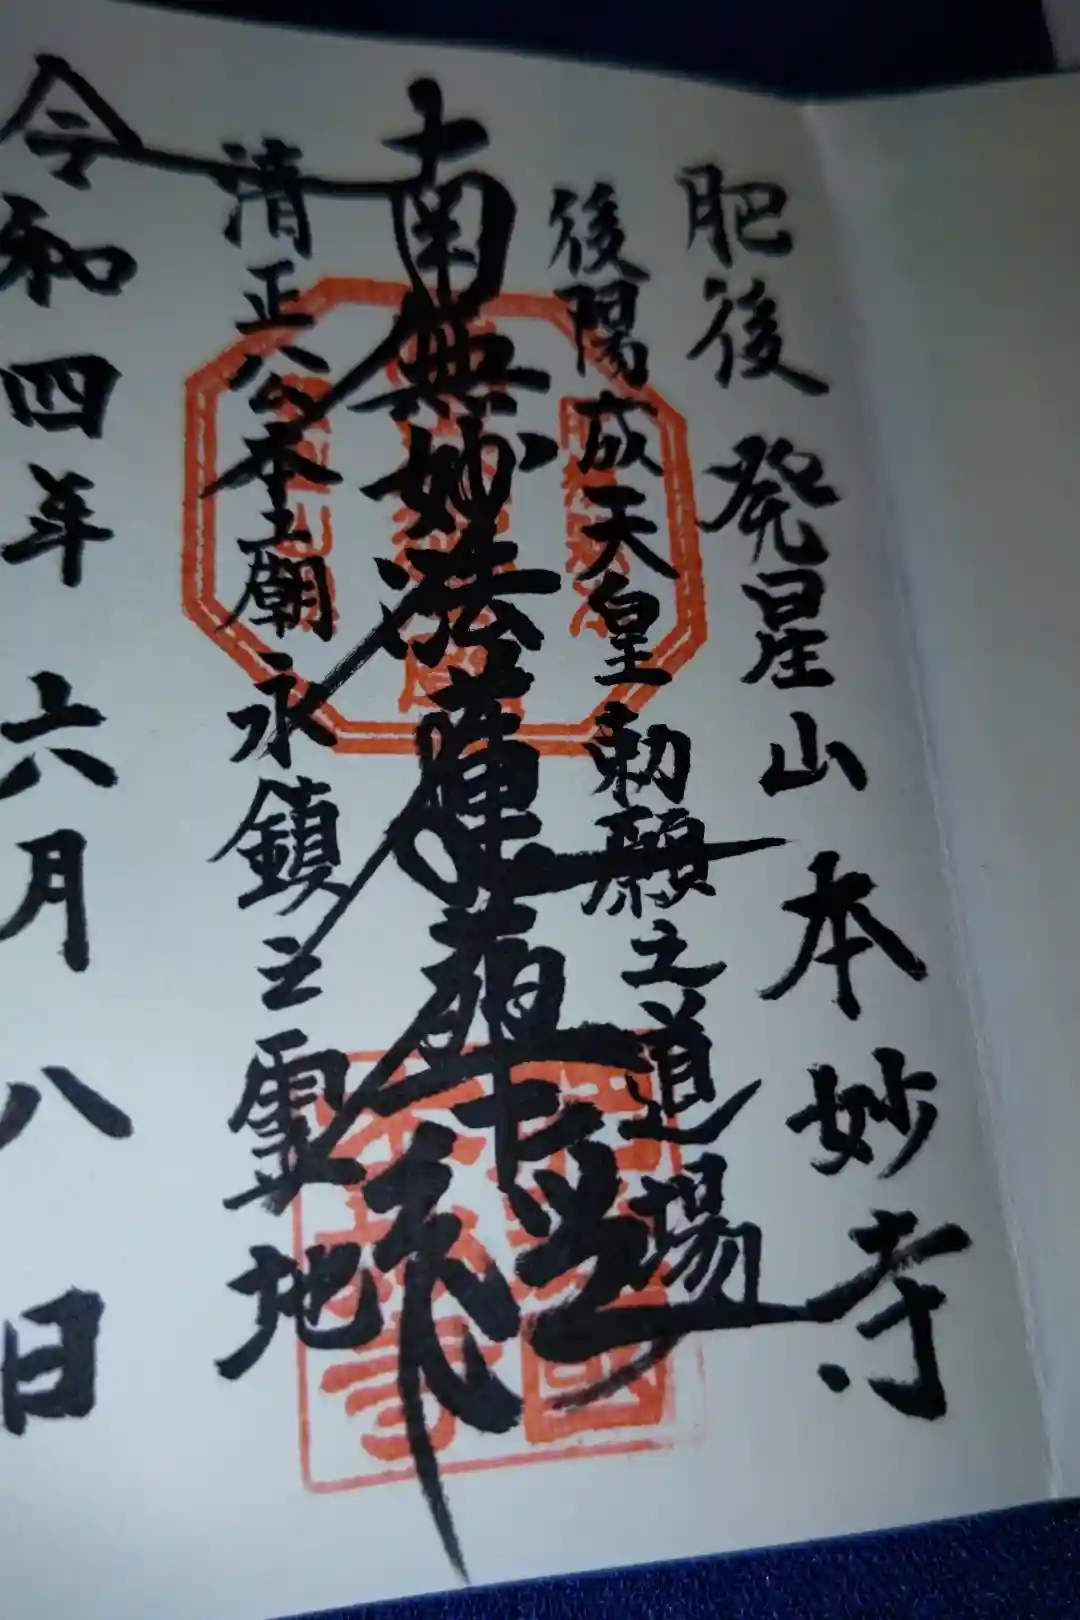 肥後 発星山 本妙寺
後陽成天皇 勅願之道場
南無妙法蓮華経
清正公本土廟 永鎮之霊地
令和四年 六月八日